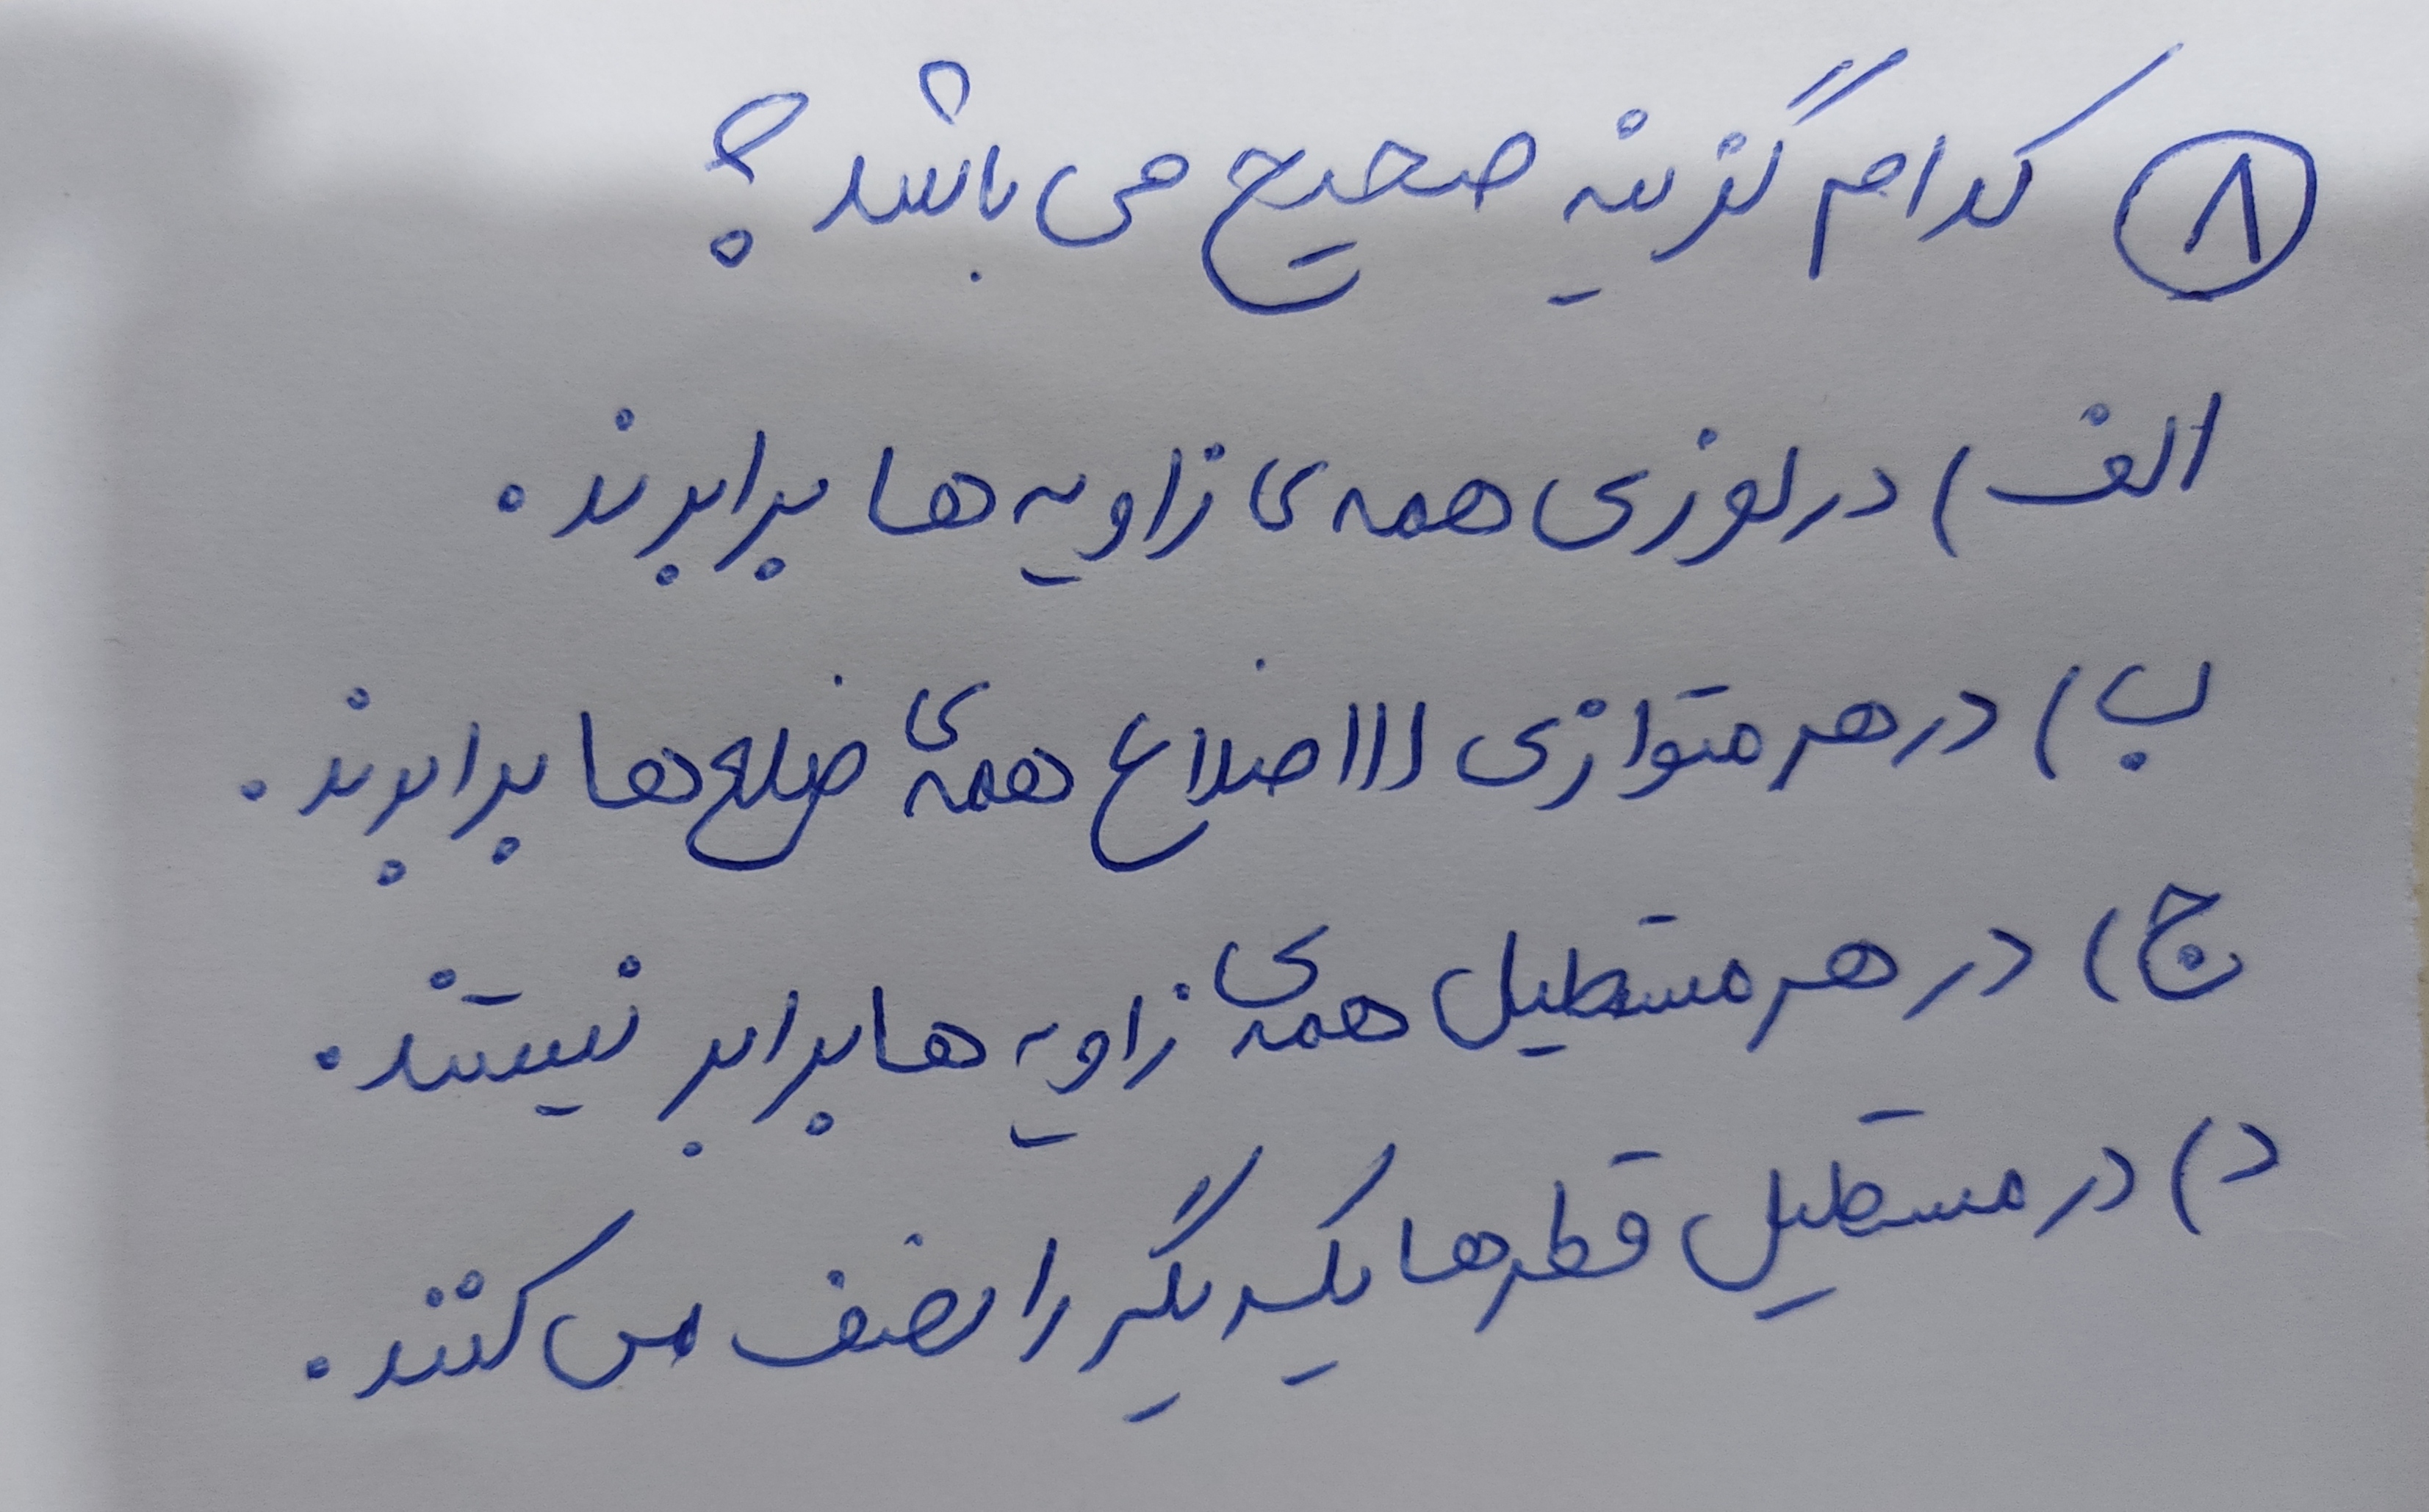 ۸ کدام گزینه صحیح می باشد؟
الف) در لوزی همه ی زاویه ها برابرند.
ب) در هر متوازی الااضلاع همه ی ضلع ها برابرند.
ج) در هر مستطیل همه ی زاویه ها برابر نیستند.
د) در مستطیل قطرها یکدیگر را نصف می کنند.